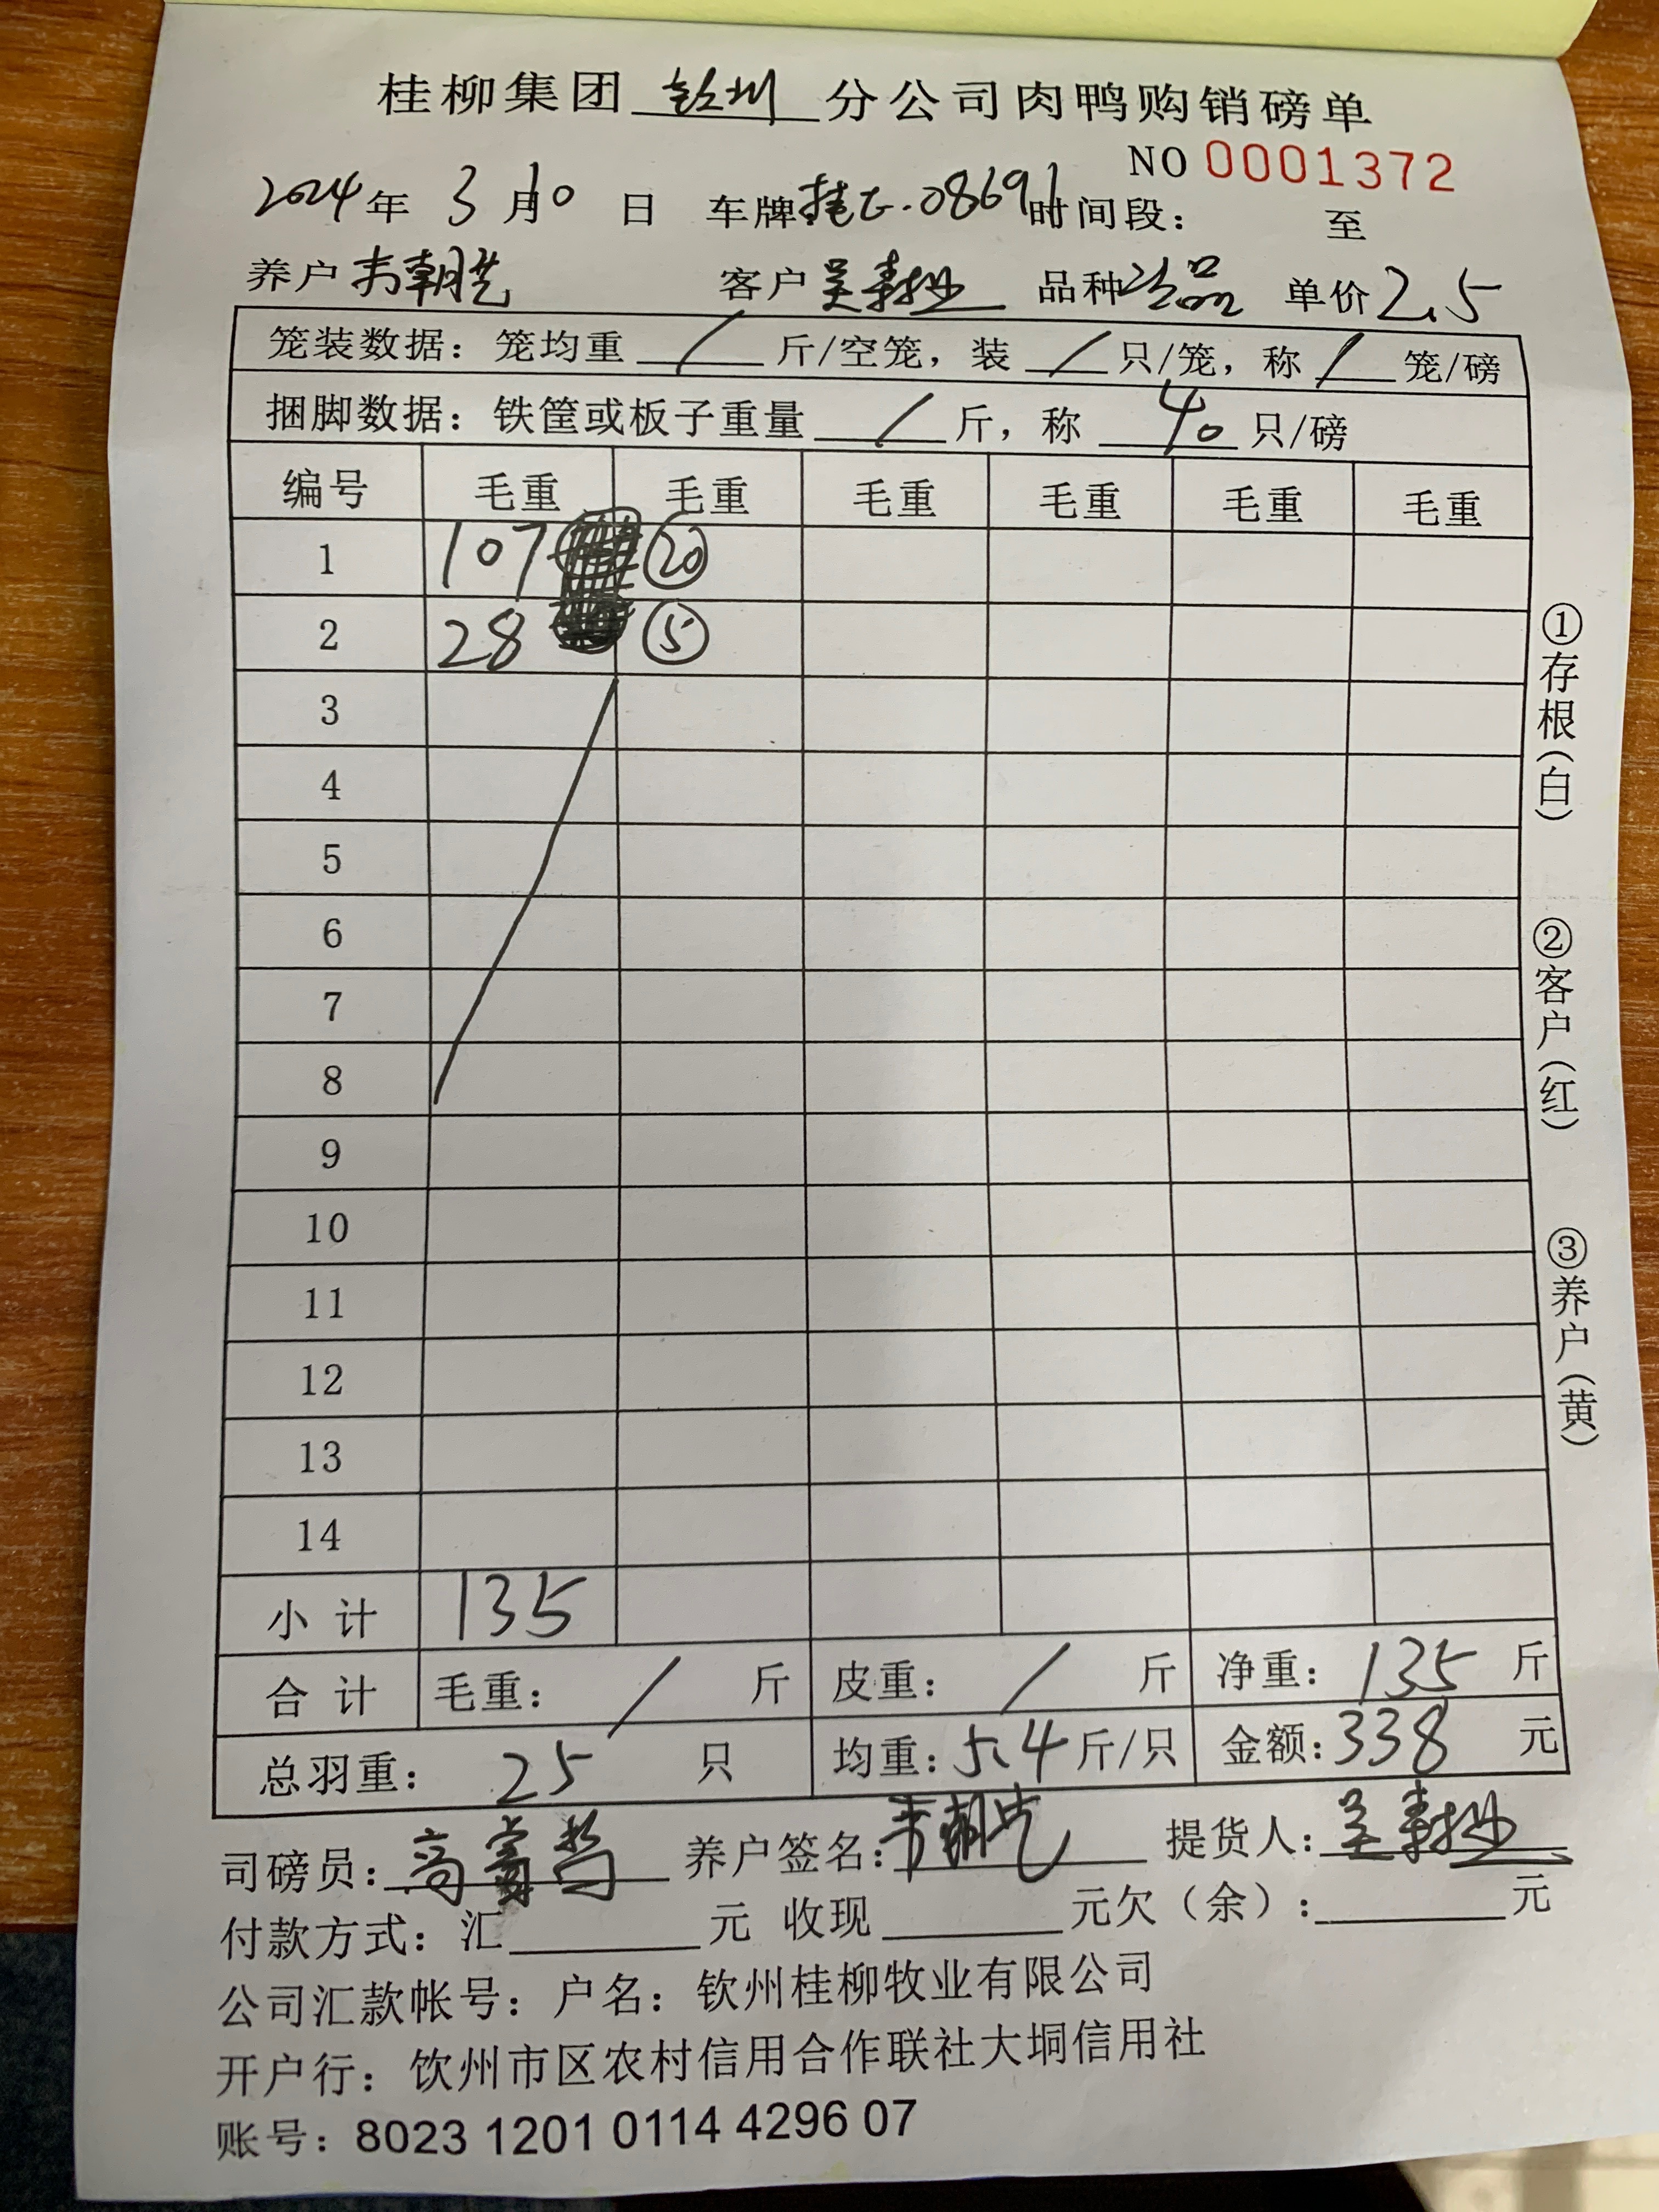 桂柳集团 钦州 分公司肉鸭购销磅单
NO 0001372
2024 年 3 月 10 日 车牌 桂E.08691 时间段： 至
养户 韦朝 客户 吴 品种 次品 单价 2.5
笼装数据：笼均重 / 斤/空笼，装 / 只/笼，称 / 笼/磅
捆脚数据：铁筐或板子重量 / 斤，称 40 只/磅
编号 毛重 毛重 毛重 毛重 毛重 毛重
1 107 ⑳
2 28 ⑤
3
4
5
6
7
8
9
10
11
12
13
14
小计 135
合计 毛重： / 斤 皮重： / 斤 净重： 135 斤
总羽重： 25 只 均重：5.4 斤/只 金额：338 元
司磅员：高 养户签名：韦朝 提货人：吴
付款方式：汇 元 收现 元欠（余）： 元
公司汇款帐号：户名：钦州桂柳牧业有限公司
开户行：钦州市区农村信用合作联社大垌信用社
账号：8023 1201 0114 4296 07
①存根(白)
②客户(红)
③养户(黄)